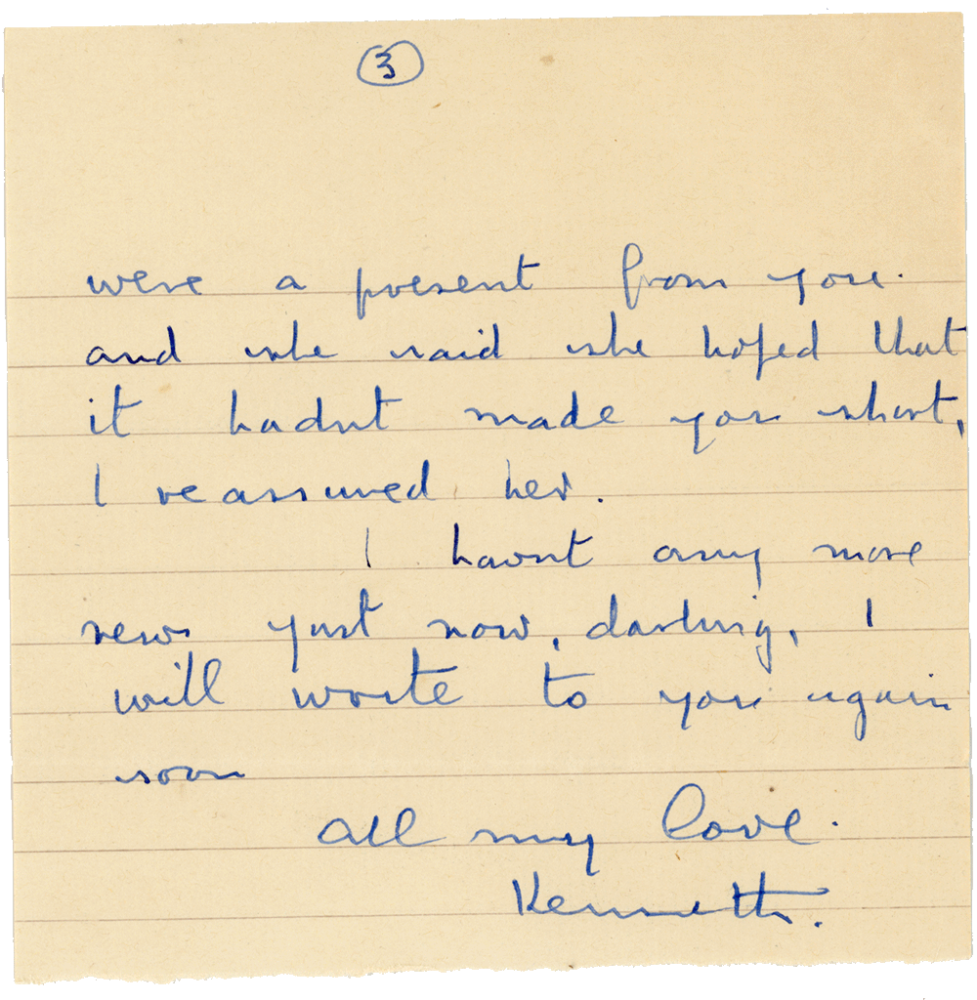 3
were a present from you.
and she said she hoped that
it hadnt made you short,
I reassured her.
I havnt any more
news just now, darling, I
will write to you again
soon
all my love.
Kenneth.